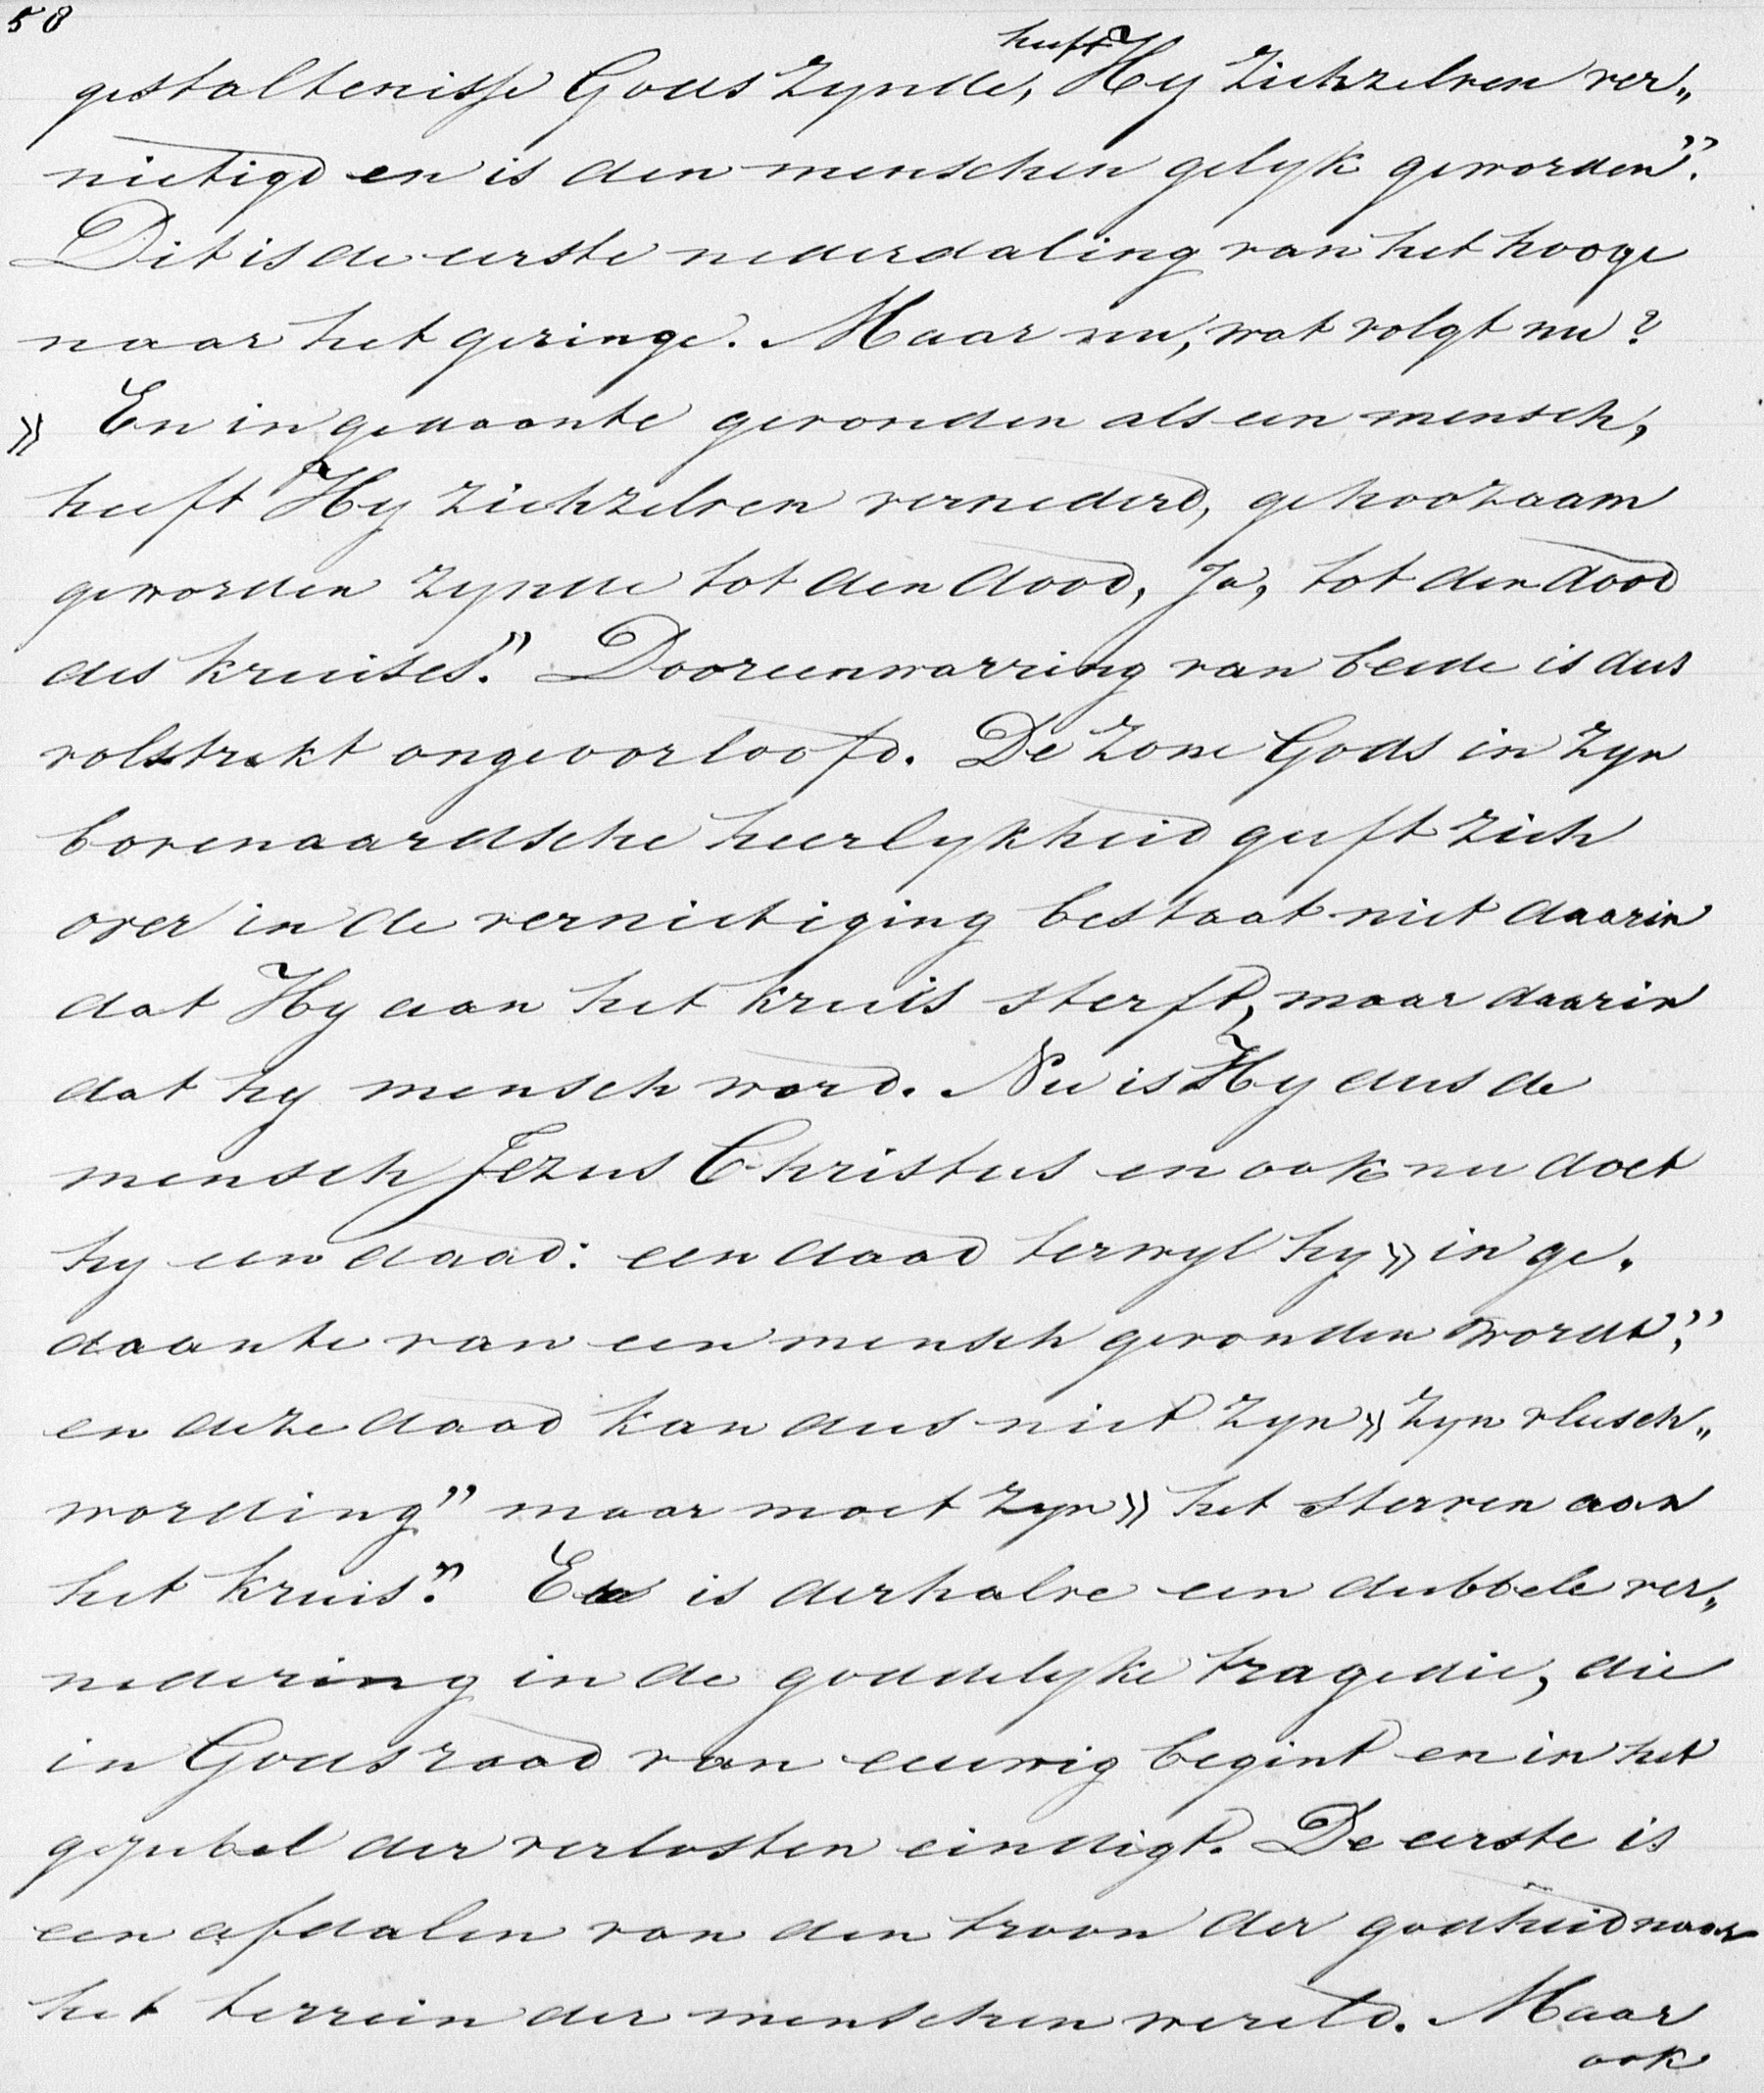 58
heeft
gestaltenisse Gods zynde, Hy zichzelven ver„
nietigd en is den menschen gelyk geworden".
Dit is de eerste nederdaling van het hooge
naar het geringe. Maar nu, wat volgt nu?
» En in gedaante gevonden als een mensch,
heeft Hy zichzelven vernederd, gehoorzaam
geworden zynde tot den dood, Ja, tot den dood
des kruises." Dooreenwarring van beide is dus
volstrekt ongeoorloofd. De Zone Gods in zyn
bovenaardsche heerlykheid geeft zich
over in de vernietiging bestaat niet daarin
dat Hy aan het kruis sterft, maar daarin
dat hy mensch word. Nu is Hy dus de
mensch Jezus Christus en ook nu doet
hy een daad: een daad terwyl hy » in ge„
daante van een mensch gevonden wordt,"
en deze daad kan dus niet zyn » zyn vleesch„
wording" maar moet zyn » het sterven aan
het kruis." Er is derhalve een dubbele ver„
nedering in de goddelyke tragedie, die
in Gods raad van eeuwig begint en in het
gejubel der verlosten eindigt. De eerste is
een afdalen van den troon der godheid naar
het terrein der menschen wereld. Maar
ook